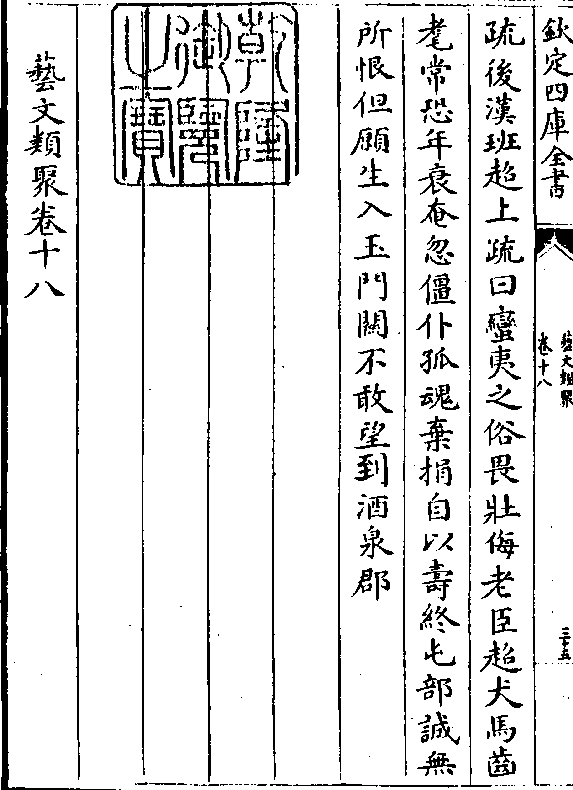 欽定四庫全書
藝文類聚
卷十八
三十五
疏後漢班超上疏曰蠻夷之俗畏壯侮老臣超犬馬齒
耄常恐年衰奄忽僵仆孤魂棄捐自以壽終屯部誠無
所恨但願生入玉門關不敢望到酒泉郡
乾隆御覽之寶
藝文類聚卷十八